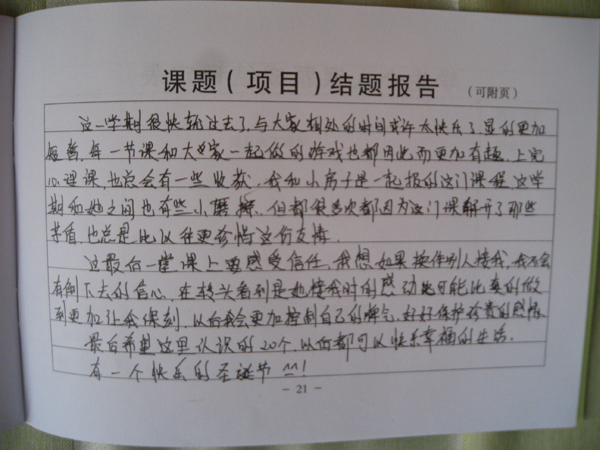 课题(项目)结题报告 (可附页)
这一学期很快就过去了,与大家相处的时间或许太快乐了,显的更加
短暂,每一节课和大家一起做的游戏也都因此而更加有趣,上完
心理课也总会有一些收获,我和小房子是一起报的这门课程,这学
期和她之间也有些小磨擦,但都很多次都因为这门课解开了那些
矛盾,也总是比以往更珍惜这份友情.
这最后一堂课上要感受信任,我想如果换作别人接我,我不会
有倒下去的信心,在转头看到是她接我时的感动
到更加让我深刻,以后我会更加控制自己的脾气,好好保护珍贵的感情.
最后希望这里认识的20个,以后都可以快乐幸福的生活.
有一个快乐的圣诞节 ^^!
- 21 -